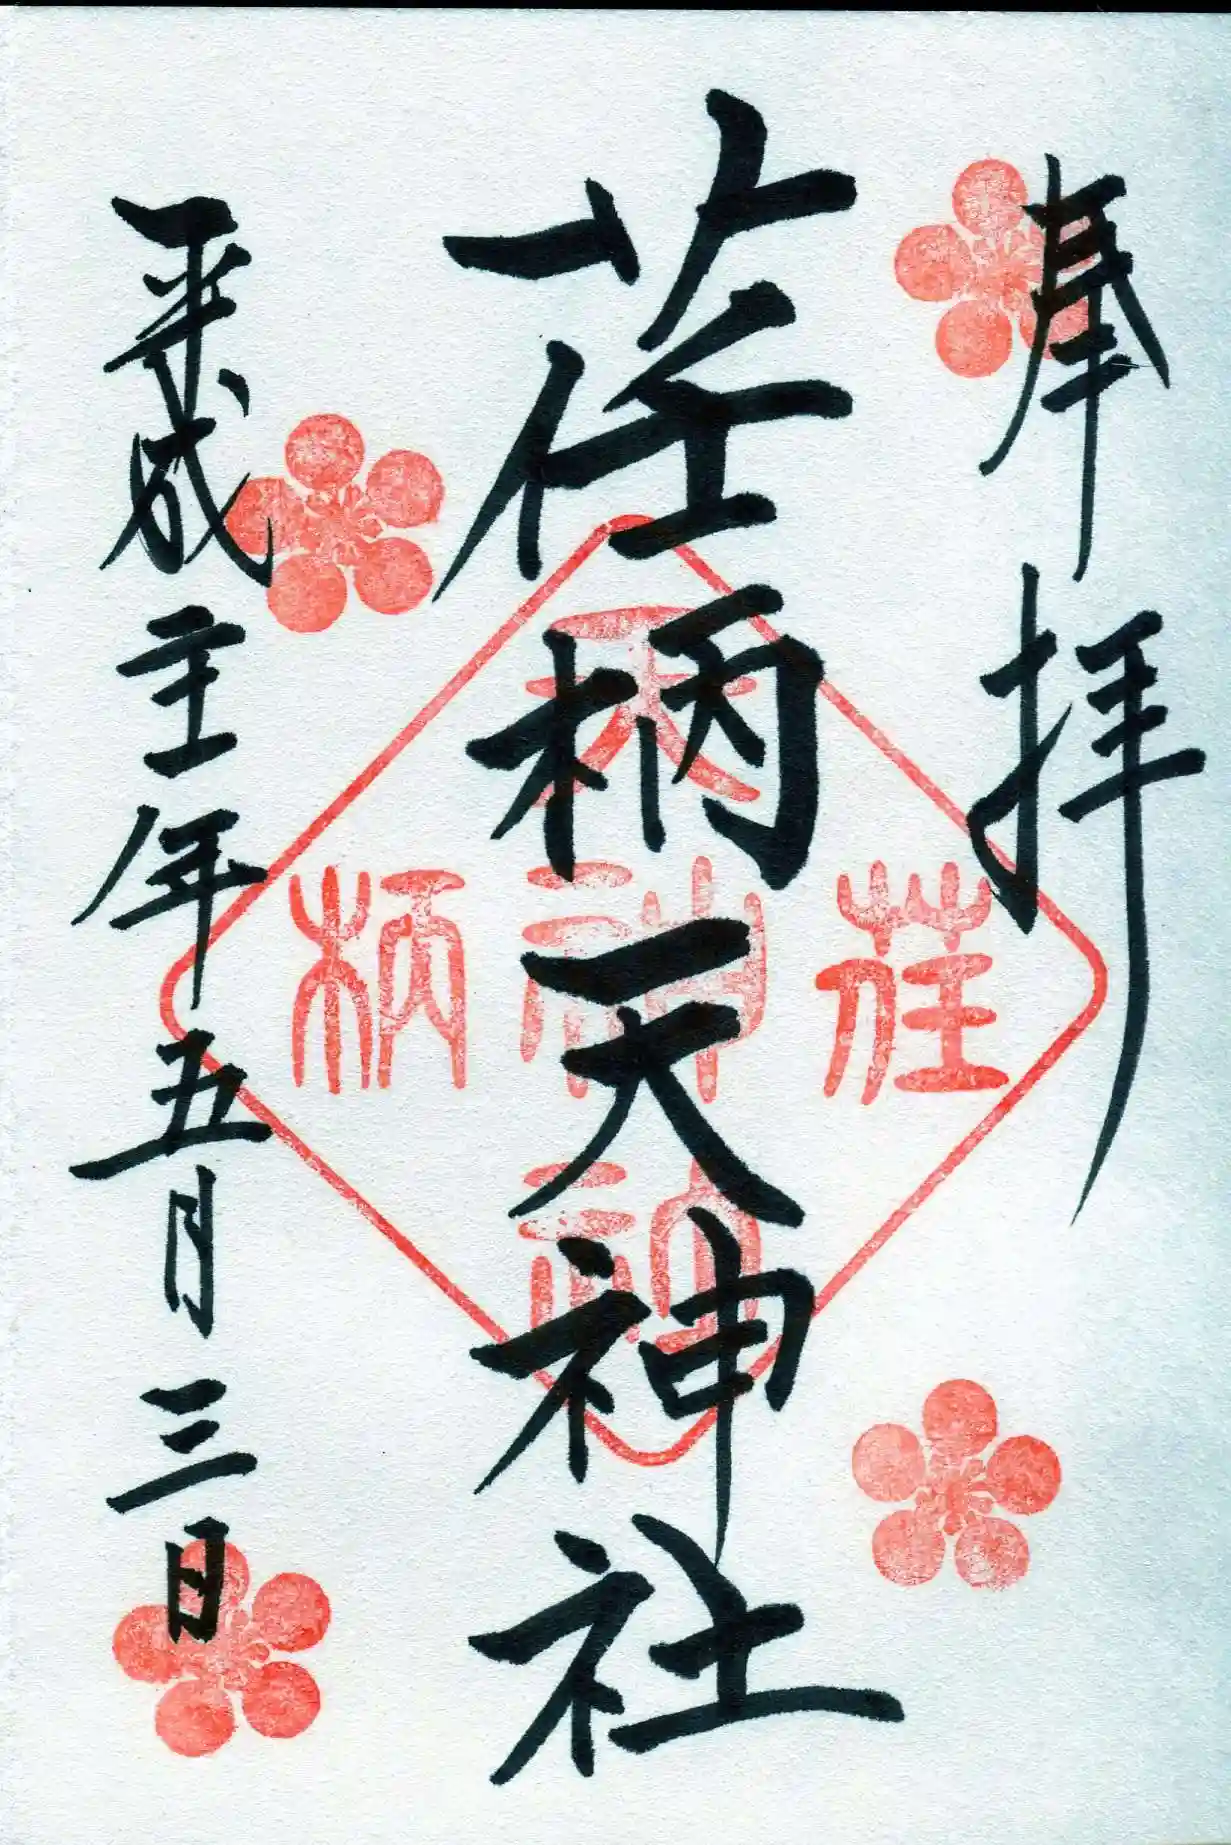 奉拝
荏柄天神社
平成二十一年五月三日
荏柄天神社